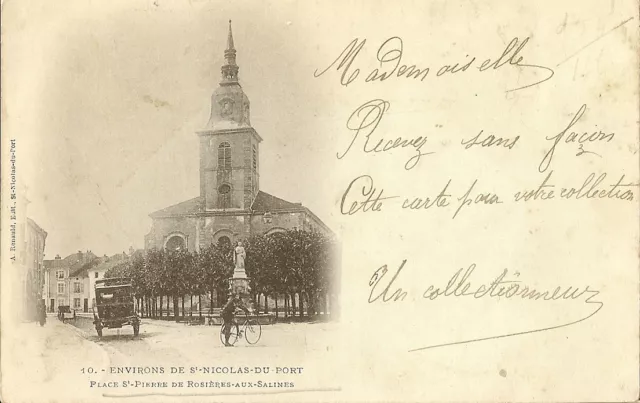 Mademoiselle
Recevez sans façon
Cette carte pour votre collection
Un collectionneur
A. Rimauld, Edit., St-Nicolas-du-Port
10. - ENVIRONS DE St-NICOLAS-DU-PORT
PLACE St-PIERRE DE ROSIÈRES-AUX-SALINES